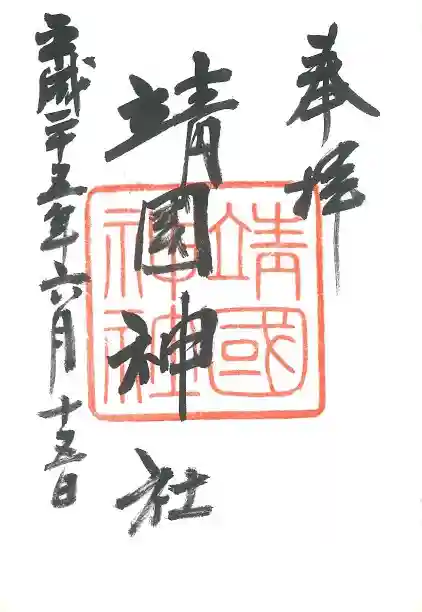 奉拝
靖國神社
靖國
神社
平成二十五年六月十五日